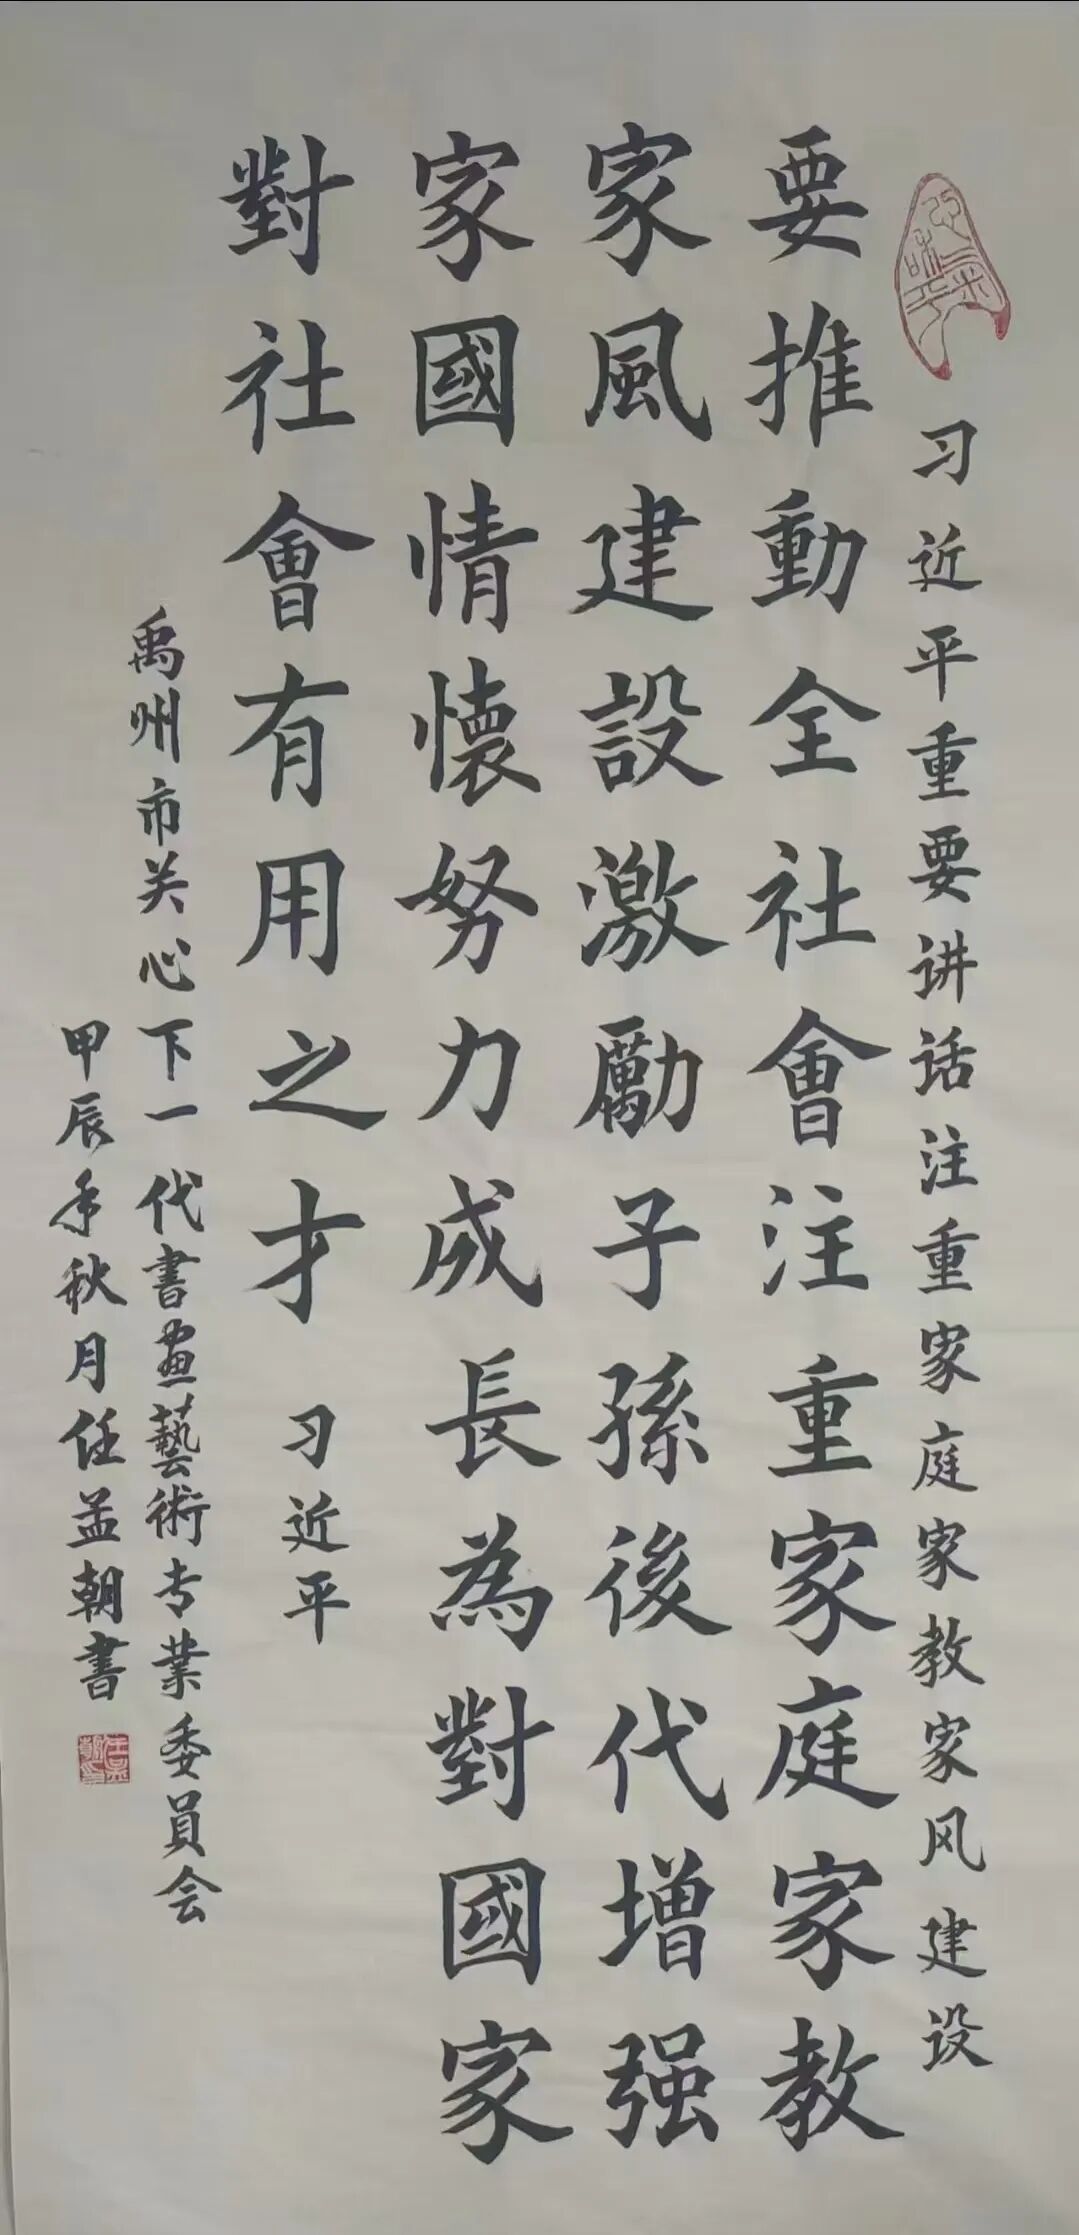 习近平重要讲话注重家庭家教家风建设
要推動全社會注重家庭家教
家風建設激勵子孫後代增强
家國情懷努力成長為對國家
對社會有用之才 习近平
禹州市关心下一代書画藝術专業委員会
甲辰年秋月任孟朝書